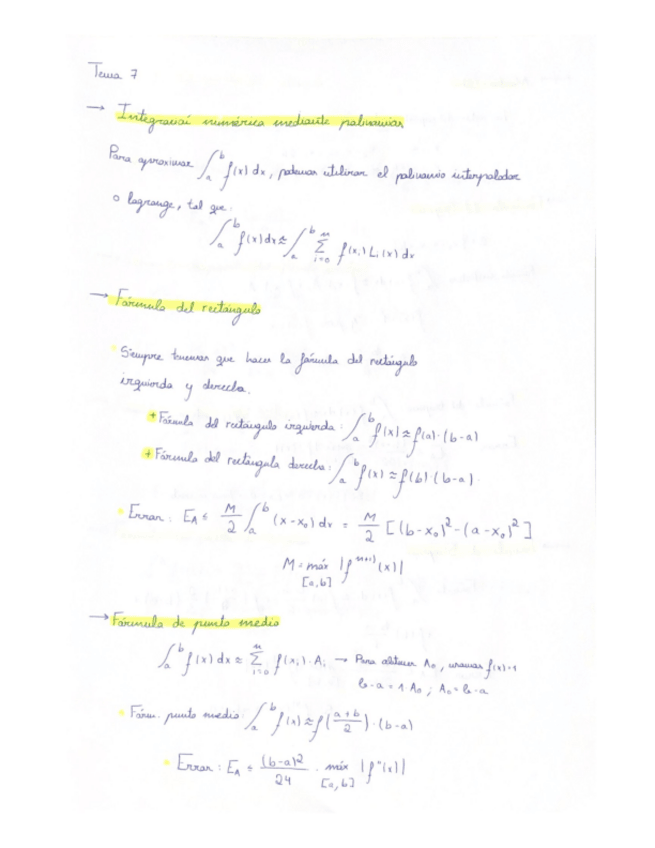 Tema 7
→ Integración numérica mediante polinomios
Para aproximar ∫_a^b f(x) dx, podemos utilizar el polinomio interpolador
o lagrange, tal que:
∫_a^b f(x) dx ≈ ∫_a^b Σ_{i=0}^n f(x_i) L_i(x) dx
→ Fórmula del rectángulo
Siempre tenemos que hacer la fórmula del rectángulo
izquierda y derecha.
+ Fórmula del rectángulo izquierda: ∫_a^b f(x) ≈ f(a)·(b-a)
+ Fórmula del rectángulo derecha: ∫_a^b f(x) ≈ f(b)·(b-a).
• Error: E_A ≤ M/2 ∫_a^b (x-x_0) dx = M/2 [(b-x_0)^2 - (a-x_0)^2]
M = máx |f^{n+1)}(x)|
[a,b]
→ Fórmula de punto medio
∫_a^b f(x) dx ≈ Σ_{i=0}^n f(x_i)·A_i → Para obtener A_0, usamos f(x)=1
b-a = 1·A_0; A_0 = b-a
• Fórm. punto medio ∫_a^b f(x) ≈ f((a+b)/2)·(b-a)
• Error: E_A ≤ (b-a)^2/24 · máx |f''(x)|
[a,b]